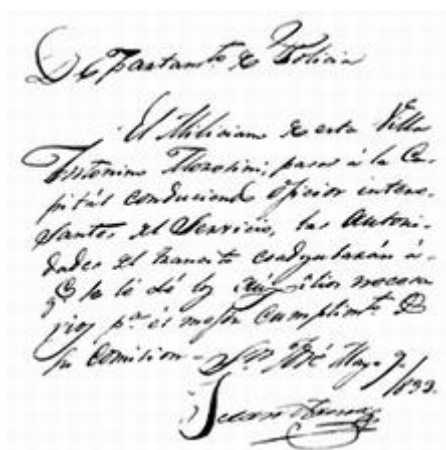 Departamto. de Policia
El Miliciano de esta Villa
Antonino; pasa á la Ca-
pitál conduciendo oficios intere-
santes del Servicio, las Autori-
dades del transito coadyubarán á
qe. se le dé los aucilios necesa
rios pa. el mejor cumplimto. de
su Comision - Sn. José Mayo 9/
1832.
Juan